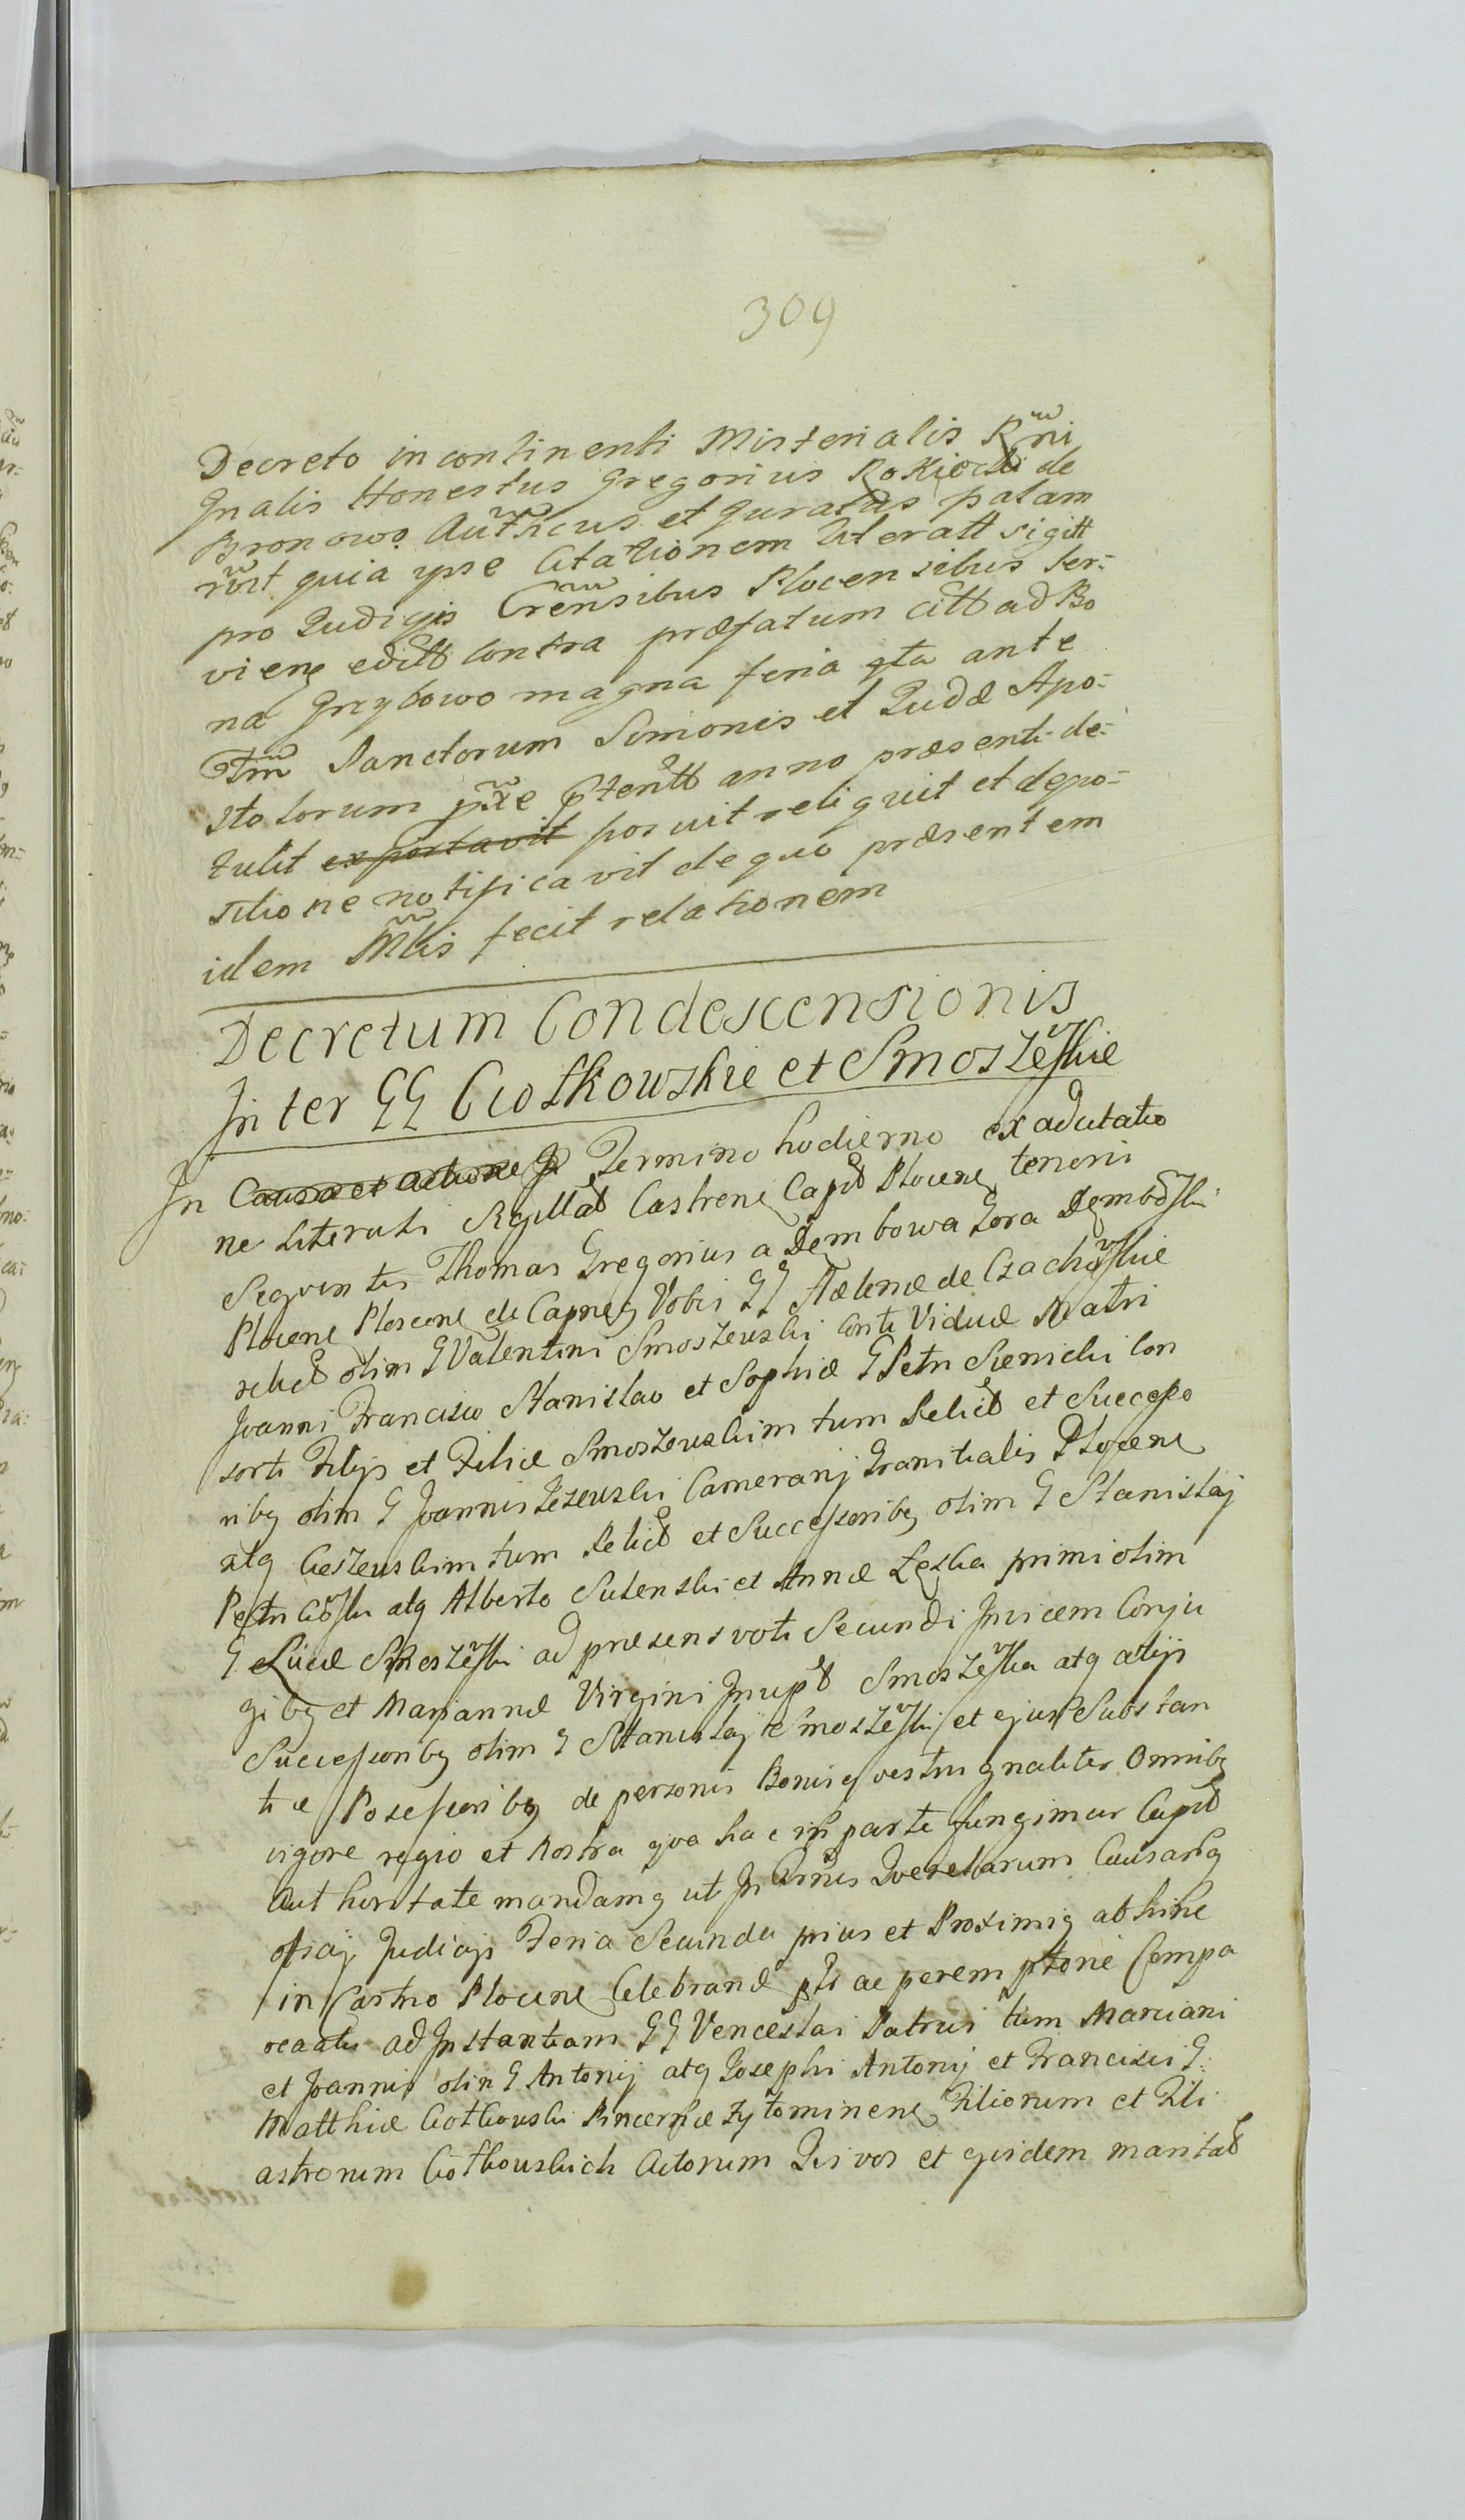 309
Decreto incontinenti Misterialis Rni
Gnalis Honestus Gregorius Rokicki de
Bronowo Authcus et Juratus palam
rlvit quia ipse Citationem literatt sigitt
pro Judicijs Crensibus Plocensibus ser-
viens editt contra præfatum Citt ad Bo
na Grzybowo magna feria qta ante
ftm Sanctorum Simonis et Judæ Apo-
stolorum pxe pteritt anno præsenti de-
tulit exportavit posuit reliquit et depo-
sitione notificavit de quo præsentem
idem Mlis fecit relationem
Decretum Condescensionis
Inter GG Ciotkowskie et Smoszewskie
In Causa et actione Termino hodierno ex adcitatio
ne Literati Sigillatt Castrens Capit Plocens tenoris
Sequentis Thomas Gregorius a Dembowa Gora Dembowski
Plocens Ploscens de Capneus Vobis GG Hælenæ de Czachowskie
relict olim G Valentini Smoszewski Conti Viduæ Matri
Joanni Francisco Stanislao et Sophiæ G Petri Sienicki Con
sorti Filijs et Filiæ Smoszewskim tum Relict et Successo
ribus olim G Joannis Jezewski Camerarij Granitialis Plocens
atq tum Relict et Successoribus olim G Stanislaj
Petri atq Alberto Sulenski et Annæ Łęska primi olim
G Lucæ Smoszewski ad præsens voti Secundi Invicem Conju
gibus et Mariannæ Virgini Inupt Smoszewska atq alijs
Successoribus olim G Stanislaj Smoszewski et ejus Substan
tiæ Possessoribus de personis Bonisq vestris gnaliter Omnibus
vigore regio et Nostra qva hac in parte fungimur Capit
Authoritate mandamus ut In Tmis Querelarum Causarq
officij Judicijs Feria Secunda prius et Proximis abhinc
in Castro Plocens Celebrand pts ac peremptorie Compa
reatis ad Instantiam GG Venceslai Patrui tum Marciani
et Joannis olim G Antonij atq Josephi Antonij et Francisci G
Matthiæ Ciotkowski Pincernæ Zytominens Filiorum et Fili
astrorum Ciotkowskich Actorum Qui vos et quidem maritatt